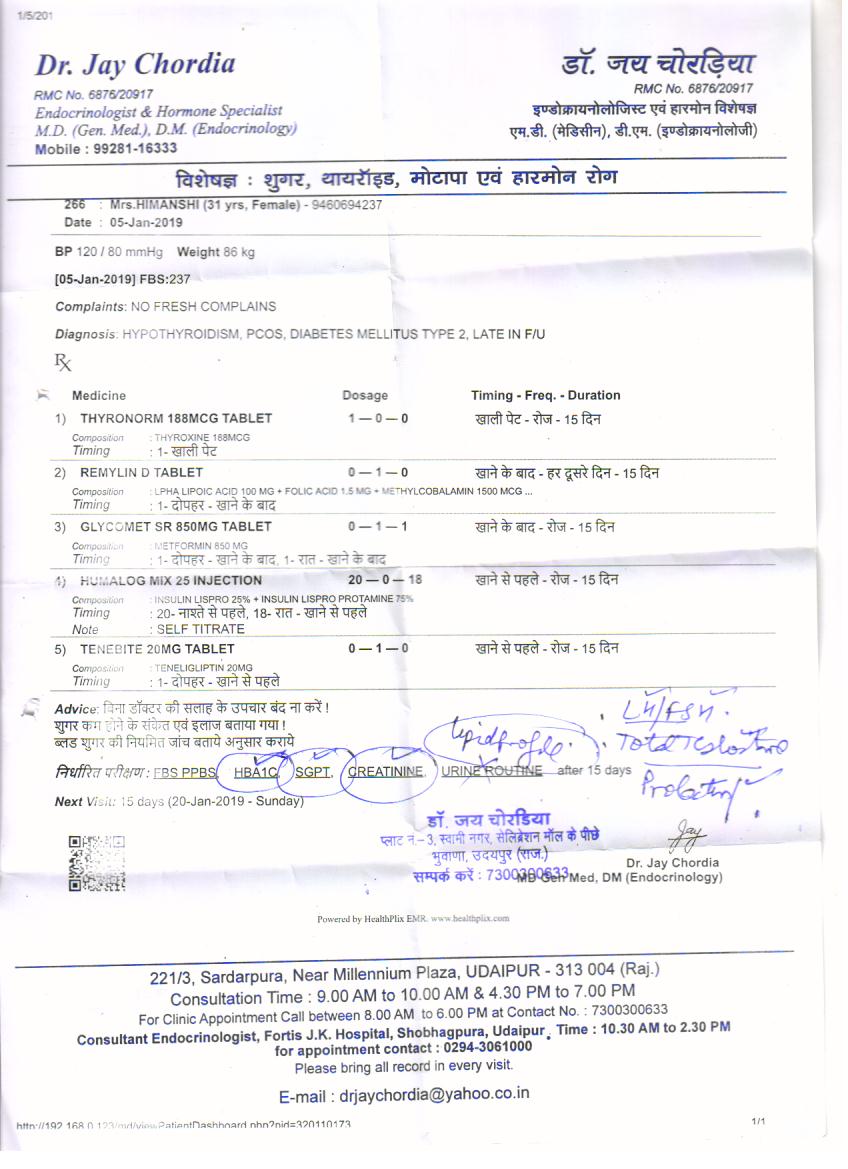 1/5/201
Dr. Jay Chordia
RMC No. 6876/20917
Endocrinologist & Hormone Specialist
M.D. (Gen. Med.), D.M. (Endocrinology)
Mobile : 99281-16333
डॉ. जय चोरड़िया
RMC No. 6876/20917
इण्डोक्रायनोलोजिस्ट एवं हारमोन विशेषज्ञ
एम.डी. (मेडिसीन), डी.एम. (इण्डोक्रायनोलोजी)
विशेषज्ञ : शुगर, थायरॉइड, मोटापा एवं हारमोन रोग
266 : Mrs.HIMANSHI (31 yrs, Female) - 9460694237
Date : 05-Jan-2019
BP 120 / 80 mmHg Weight 86 kg
[05-Jan-2019] FBS:237
Complaints: NO FRESH COMPLAINS
Diagnosis: HYPOTHYROIDISM, PCOS, DIABETES MELLITUS TYPE 2, LATE IN F/U
Rx
Medicine Dosage Timing - Freq. - Duration
1) THYRONORM 188MCG TABLET 1 — 0 — 0 खाली पेट - रोज - 15 दिन
Composition : THYROXINE 188MCG
Timing : 1- खाली पेट
2) REMYLIN D TABLET 0 — 1 — 0 खाने के बाद - हर दूसरे दिन - 15 दिन
Composition : LPHA LIPOIC ACID 100 MG + FOLIC ACID 1.5 MG + METHYLCOBALAMIN 1500 MCG ...
Timing : 1- दोपहर - खाने के बाद
3) GLYCOMET SR 850MG TABLET 0 — 1 — 1 खाने के बाद - रोज - 15 दिन
Composition : METFORMIN 850 MG
Timing : 1- दोपहर - खाने के बाद, 1- रात - खाने के बाद
4) HUMALOG MIX 25 INJECTION 20 — 0 — 18 खाने से पहले - रोज - 15 दिन
Composition : INSULIN LISPRO 25% + INSULIN LISPRO PROTAMINE 75%
Timing : 20- नाश्ते से पहले, 18- रात - खाने से पहले
Note : SELF TITRATE
5) TENEBITE 20MG TABLET 0 — 1 — 0 खाने से पहले - रोज - 15 दिन
Composition : TENELIGLIPTIN 20MG
Timing : 1- दोपहर - खाने से पहले
Advice: बिना डॉक्टर की सलाह के उपचार बंद ना करें !
शुगर कम होने के संकेत एवं इलाज बताया गया !
ब्लड शुगर की नियमित जांच बताये अनुसार कराये
Lipid profile.
LH/FSH.
Total Testosterone
Prolactin
निर्धारित परीक्षण : FBS PPBS, HBA1C, SGPT, CREATININE, URINE ROUTINE after 15 days
Next Visit: 15 days (20-Jan-2019 - Sunday)
डॉ. जय चोरडिया
प्लाट नं.-3, स्वामी नगर, सेलिब्रेशन मॉल के पीछे
भुवाणा, उदयपुर (राज.)
सम्पर्क करें : 7300300633
Jay
Dr. Jay Chordia
MD Gen Med, DM (Endocrinology)
Powered by HealthPlix EMR. www.healthplix.com
221/3, Sardarpura, Near Millennium Plaza, UDAIPUR - 313 004 (Raj.)
Consultation Time : 9.00 AM to 10.00 AM & 4.30 PM to 7.00 PM
For Clinic Appointment Call between 8.00 AM to 6.00 PM at Contact No. : 7300300633
Consultant Endocrinologist, Fortis J.K. Hospital, Shobhagpura, Udaipur. Time : 10.30 AM to 2.30 PM
for appointment contact : 0294-3061000
Please bring all record in every visit.
E-mail : drjaychordia@yahoo.co.in
http://192.168.0.123/md/viewPatientDashboard.php?pid=320110173
1/1